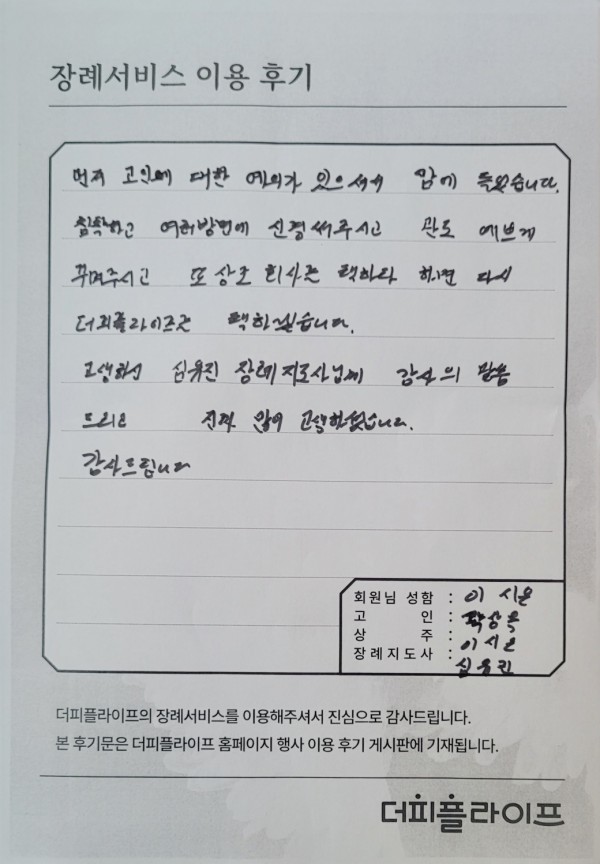 장례서비스 이용 후기
먼저 고인에 대한 예의가 있으셔서 맘에 들었습니다.
침착하고 여러방면에 신경써주시고 관도 예쁘게
꾸며주시고 또 상조 회사를 택하라 하면 다시
더피플라이프를 택하겠습니다.
고생하신 심유진 장례지도사님께 감사의 말씀
드리고 진짜 많이 고생하셨습니다.
감사드립니다
회원님 성함 : 이시은
고 인 :
상 주 : 이시은
장례지도사 : 심유진
더피플라이프의 장례서비스를 이용해주셔서 진심으로 감사드립니다.
본 후기문은 더피플라이프 홈페이지 행사 이용 후기 게시판에 기재됩니다.
더피플라이프